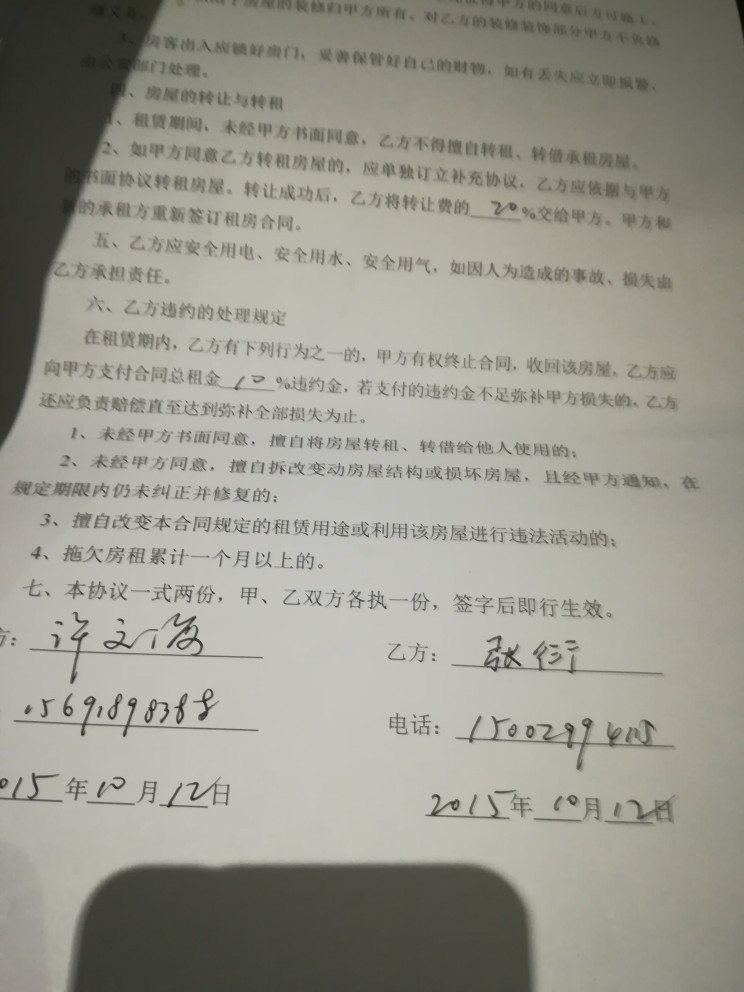 房屋的装修归甲方所有。对乙方的装修装饰部分甲方不负修
缮义务。
3、房客出入应锁好房门，妥善保管好自己的财物，如有丢失应立即报警，
由公安部门处理。
四、房屋的转让与转租
1、租赁期间，未经甲方书面同意，乙方不得擅自转租、转借承租房屋。
2、如甲方同意乙方转租房屋的，应单独订立补充协议，乙方应依据与甲方
的书面协议转租房屋。转让成功后，乙方将转让费的20%交给甲方。甲方和
新的承租方重新签订租房合同。
五、乙方应安全用电、安全用水、安全用气，如因人为造成的事故、损失由
乙方承担责任。
六、乙方违约的处理规定
在租赁期内，乙方有下列行为之一的，甲方有权终止合同，收回该房屋，乙方应
向甲方支付合同总租金10%违约金，若支付的违约金不足弥补甲方损失的，乙方
还应负责赔偿直至达到弥补全部损失为止。
1、未经甲方书面同意，擅自将房屋转租、转借给他人使用的；
2、未经甲方同意，擅自拆改变动房屋结构或损坏房屋，且经甲方通知，在
规定期限内仍未纠正并修复的；
3、擅自改变本合同规定的租赁用途或利用该房屋进行违法活动的；
4、拖欠房租累计一个月以上的。
七、本协议一式两份，甲、乙双方各执一份，签字后即行生效。
方：许文俊 乙方：张衍
15691898388 电话：15002994115
2015年10月12日 2015年10月12日